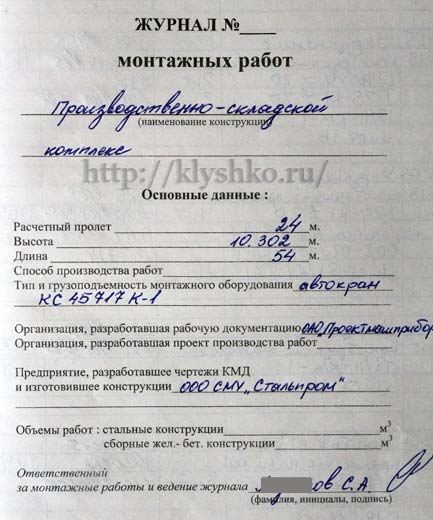 ЖУРНАЛ №____
монтажных работ
Производственно-складской
(наименование конструкции)
комплекс
http://klyshko.ru/
Основные данные :
Расчетный пролет 24 м.
Высота 10.302 м.
Длина 54 м.
Способ производства работ
Тип и грузоподъемность монтажного оборудования автокран
КС 45717 К-1
Организация, разработавшая рабочую документацию ОАО Проектмашприбор
Организация, разработавшая проект производства работ
Предприятие, разработавшее чертежи КМД
и изготовившее конструкции ООО СМУ „Стальпром"
Объемы работ : стальные конструкции м³
сборные жел.- бет. конструкции м³
Ответственный
за монтажные работы и ведение журнала ов С.А.
(фамилия, инициалы, подпись)